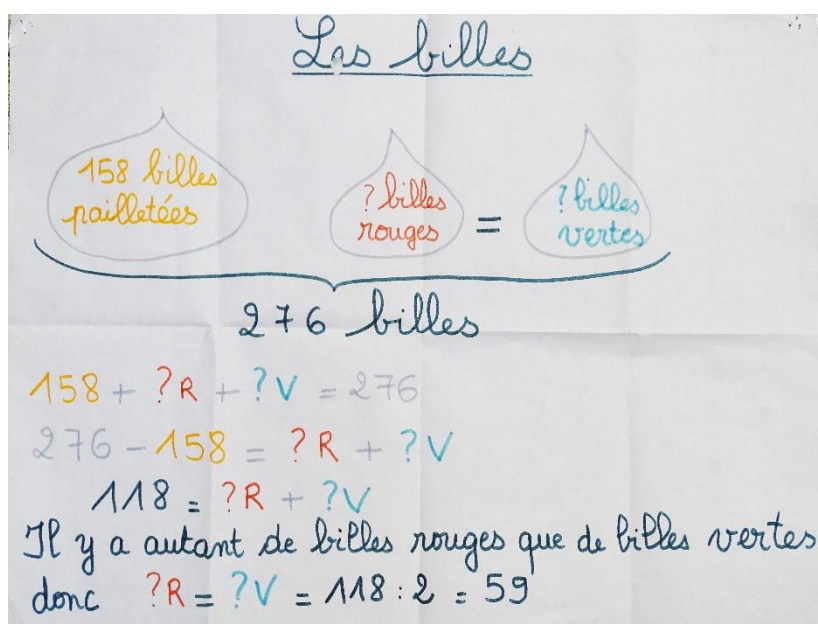 Les billes
158 billes
pailletées
? billes
rouges
=
? billes
vertes
276 billes
158 + ?R + ?V = 276
276 - 158 = ?R + ?V
118 = ?R + ?V
Il y a autant de billes rouges que de billes vertes
donc ?R = ?V = 118 : 2 = 59